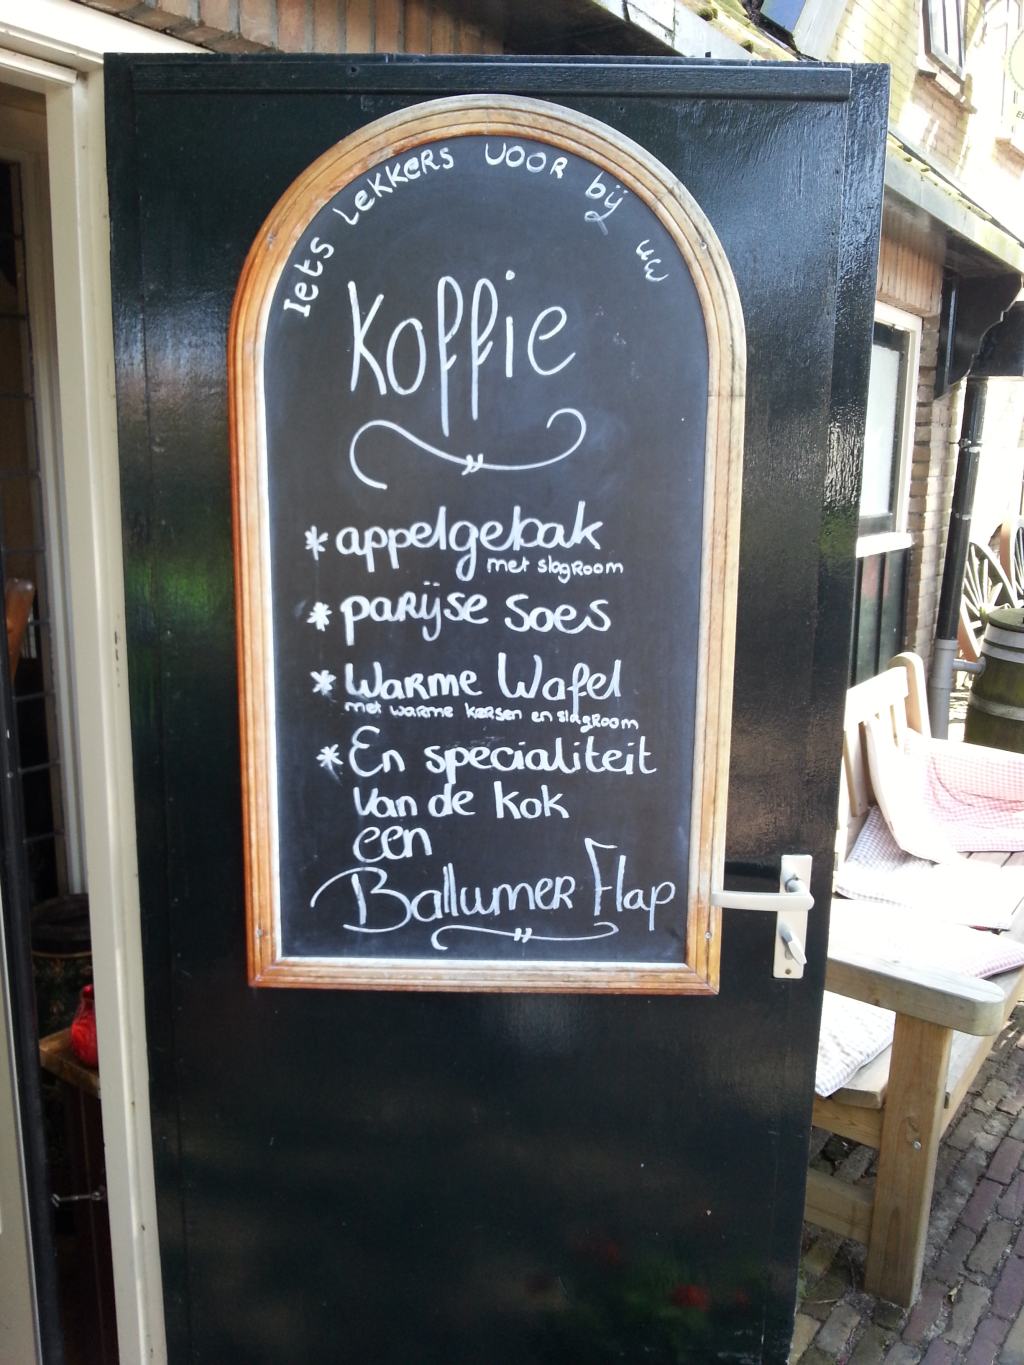 Iets Lekkers voor bij uw
Koffie
* appelgebak
met slagroom
* parijse Soes
* Warme Wafel
met warme kersen en slagroom
* En specialiteit
van de kok
een
Ballumer Flap